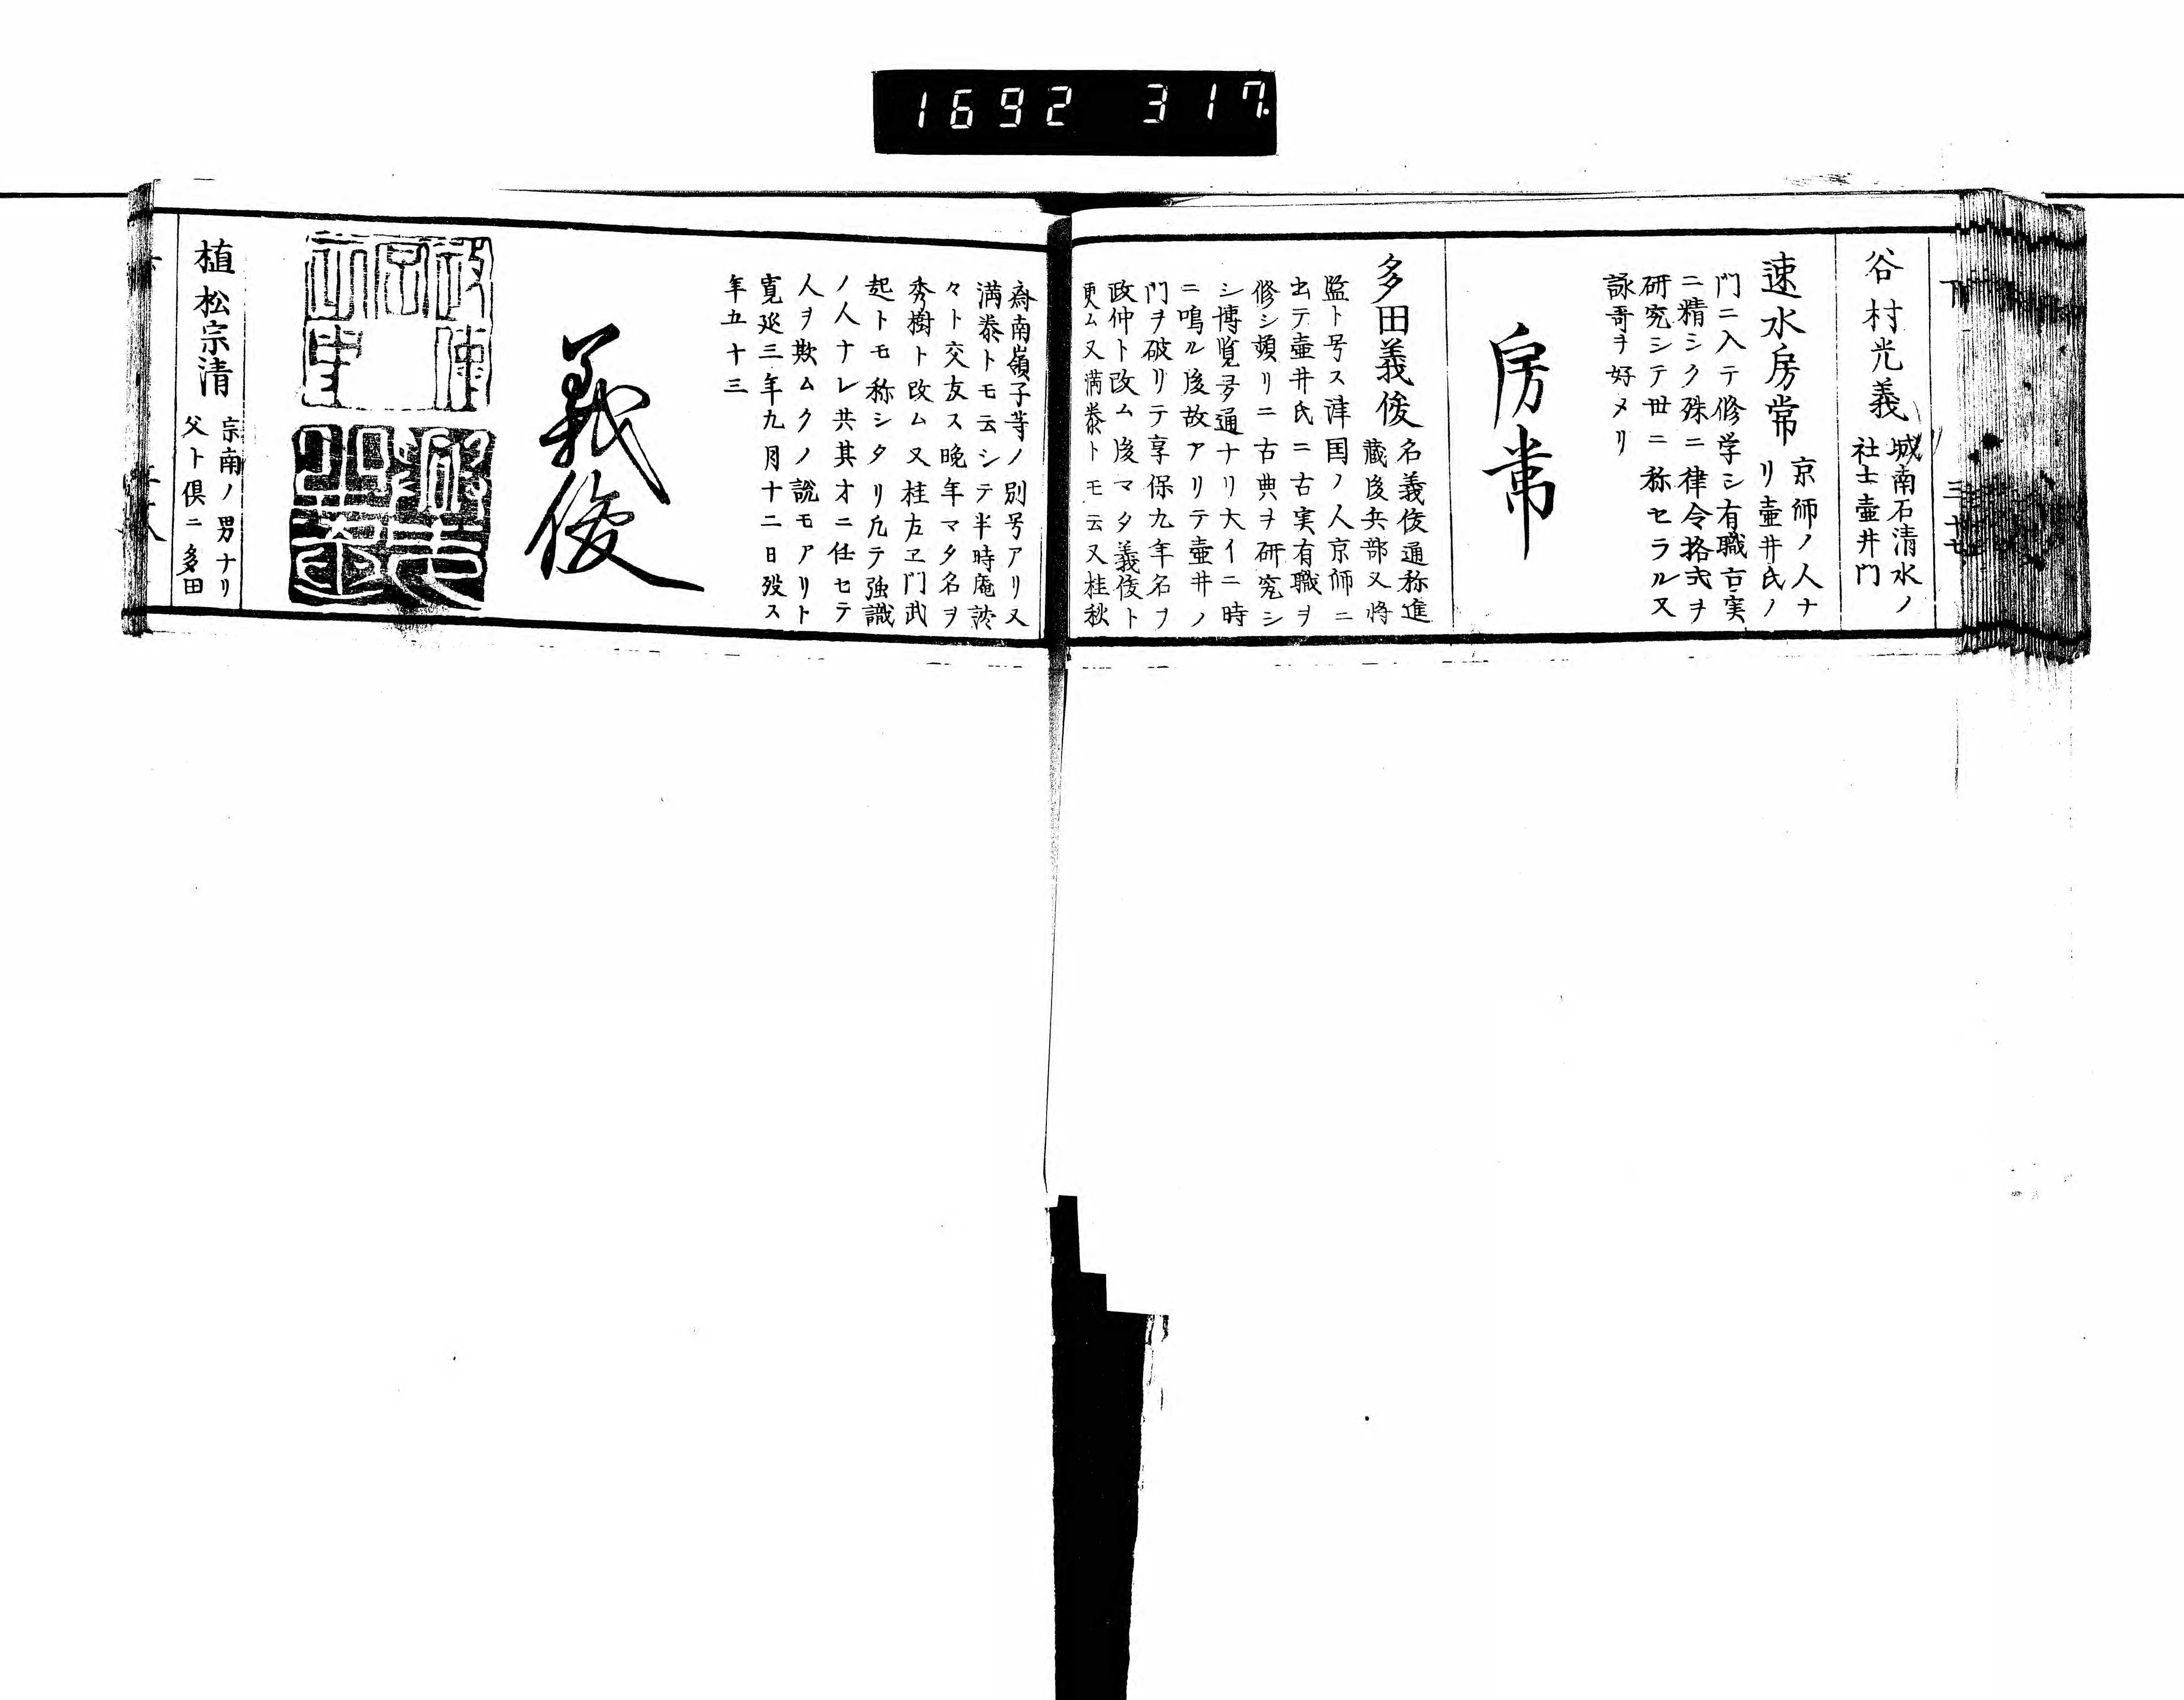 1692 317
下 三十七
谷村光義
城南石清水ノ
社士壺井門
速水房常
京師ノ人ナ
リ壺井氏ノ
門ニ入テ修学シ有職古実
ニ精シク殊ニ律令格式ヲ
研究シテ世ニ称セラル又
詠哥ヲ好メリ
房常
多田義俊
名義俊通称進
蔵後兵部又将
監ト号ス津国ノ人京師ニ
出テ壷井氏ニ古実有職ヲ
修シ頻リニ古典ヲ研究シ
シ博覧多通ナリ大イニ時
ニ鳴ル後故アリテ壷井ノ
門ヲ破リテ享保九年名ヲ
政仲ト改ム後マタ義俊ト
更ム又満泰トモ云又桂秋
斎南嶺子等ノ別号アリ又
満泰トモ云シテ半時庵淡
々ト交友ス晩年マタ名ヲ
秀樹ト改ム又桂左ヱ門武
起トモ称シタリ凡テ強識
ノ人ナレ共其才ニ任セテ
人ヲ欺ムクノ説モアリト
寛延三年九月十二日歿ス
年五十三
義俊
植松宗清
宗南ノ男ナリ
父ト倶ニ多田